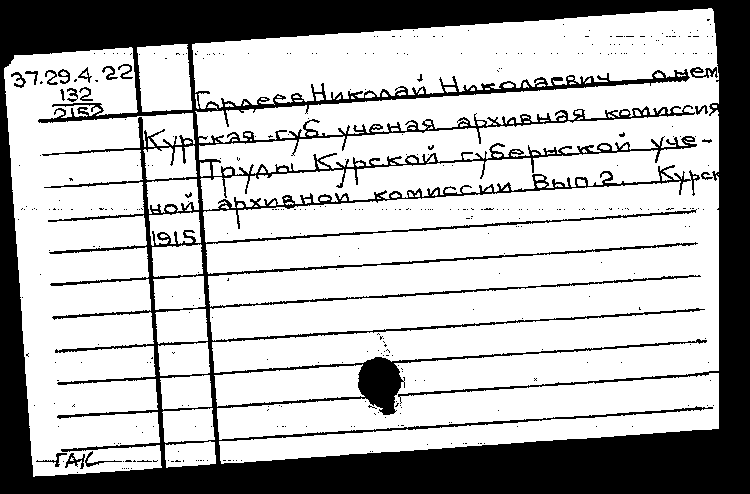 37.29.4.22
132
2152
Гордеев, Николай Николаевич о нем
Курская губ. ученая архивная комиссия
Труды Курской губернской уче-
ной архивной комиссии. Вып.2. Курск
1915
ГАК